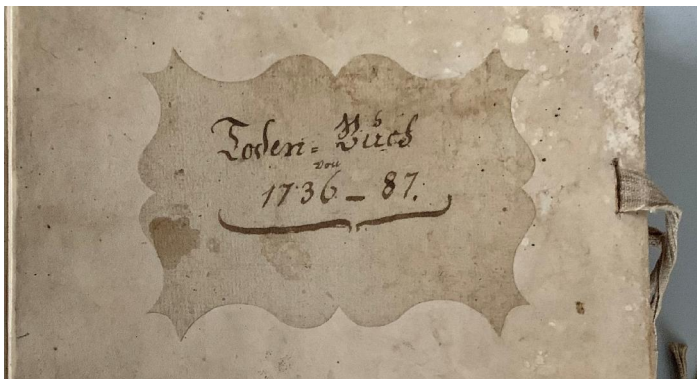 Toden=Buch
von
1736 – 87.